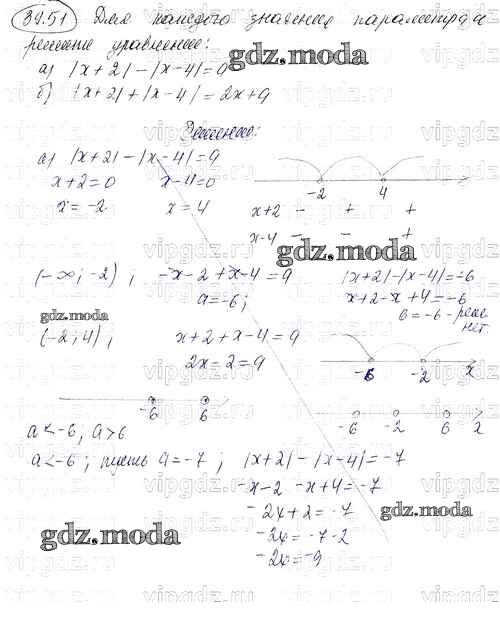 34.51 Для каждого значения параметра а
решение уравнение:
gdz.moda
а) |x+2|-|x-4|=9
б) |x+2|+|x-4|=2x+9
Решение:
а) |x+2|-|x-4|=9
x+2=0 x-4=0
x=-2 x=4
-2 4
x+2 - + +
x-4 - - +
gdz.moda
(-∞; -2), -x-2+x-4=9
a=-6;
|x+2|-|x-4|=-6
x+2-x+4=-6
6=-6 - реше
нет.
gdz.moda
(-2; 4), x+2+x-4=9
2x-2=9
-6 -2 x
-6 6
-6 -2 6 x
a<-6, a>6
a<-6; пусть a=-7; |x+2|-|x-4|=-7
-x-2-x+4=-7
-2x+2=-7
-2x=-7-2
-2x=-9
gdz.moda
gdz.moda
vipgdz.ru